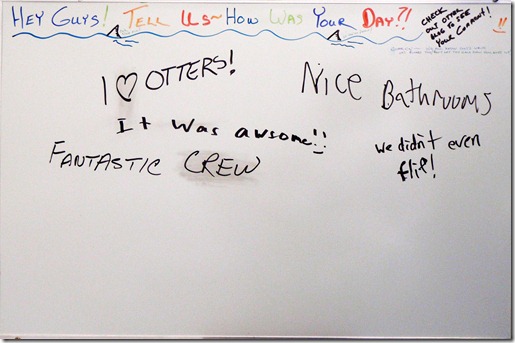 HEY GUYS! TELL US~HOW WAS YOUR DAY?!
CHECK
OUT OTTER
BLOG TO SEE
YOUR COMMENT!
I ♡ OTTERS!
NICE BATHROOMS
It was awsome!!
FANTASTIC CREW
we didn't even
flip!